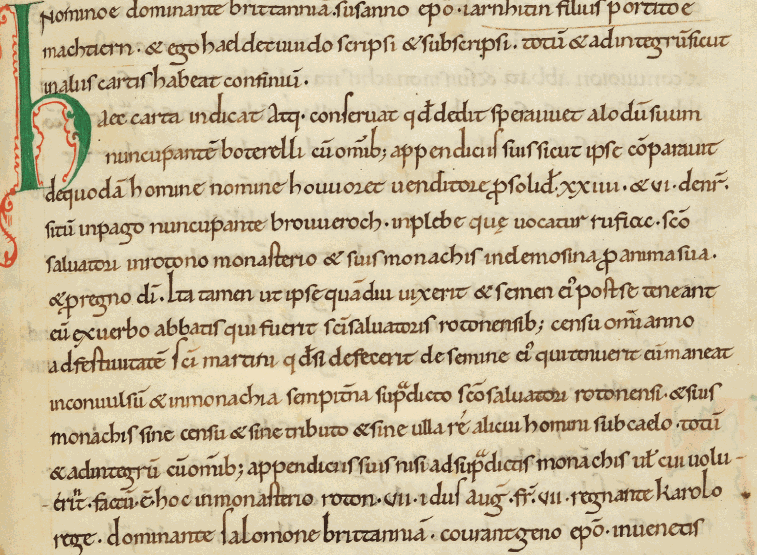 nominoe dominante brittanniā. susanno ep̄o. iarnhitin filius portitoe
machtiern. & ego haeldetuuido scripsi & subscripsi. totū & adintegrū sicut
inaliis cartis habeat confinuū.
Haec carta indicat Atq; conseruat qđ dedit sperauuet alodū suum
nuncupantē boterelli cū om̄ib; appendiciis suis sicut ipse cōparauit
dequodā homine nomine houuoret uenditore ꝓ solid̄. xxiiii. & vi. denr̄.
sitū inpago nuncupante brouueroch. inplebe quę uocatur rufiac. sc̄o
saluatori inrotono monasterio & suis monachis inelemosina ꝓ anima sua.
& ꝓ regno dī. Ita tamen ut ipse quādiu uixerit & semen ei᾿ postse teneant
eū ex uerbo abbatis qui fuerit sc̄i saluatoris rotonensib; censu om̄i anno
adfestiuitatē sc̄i martini qđ si defecerit de semine ei᾿ qui tenuerit eū maneat
inconuulsū & inmonachia sempit̄na sup̄dicto sc̄o saluatori rotonensi. & suis
monachis sine censu & sine tributo & sine ulla rē alicui homini subcaelo. totū
& adintegrū cū om̄ib; appendiciis suis nisi adsup̄dictis monachis ul̄ cui uolu-
erit̄. factū. ē. hoc inmonasterio roton. vii. idus auḡ. fr̄. vii. regnante karolo
rege. dominante salomone brittanniā. courantgeno ep̄o. inuenetis